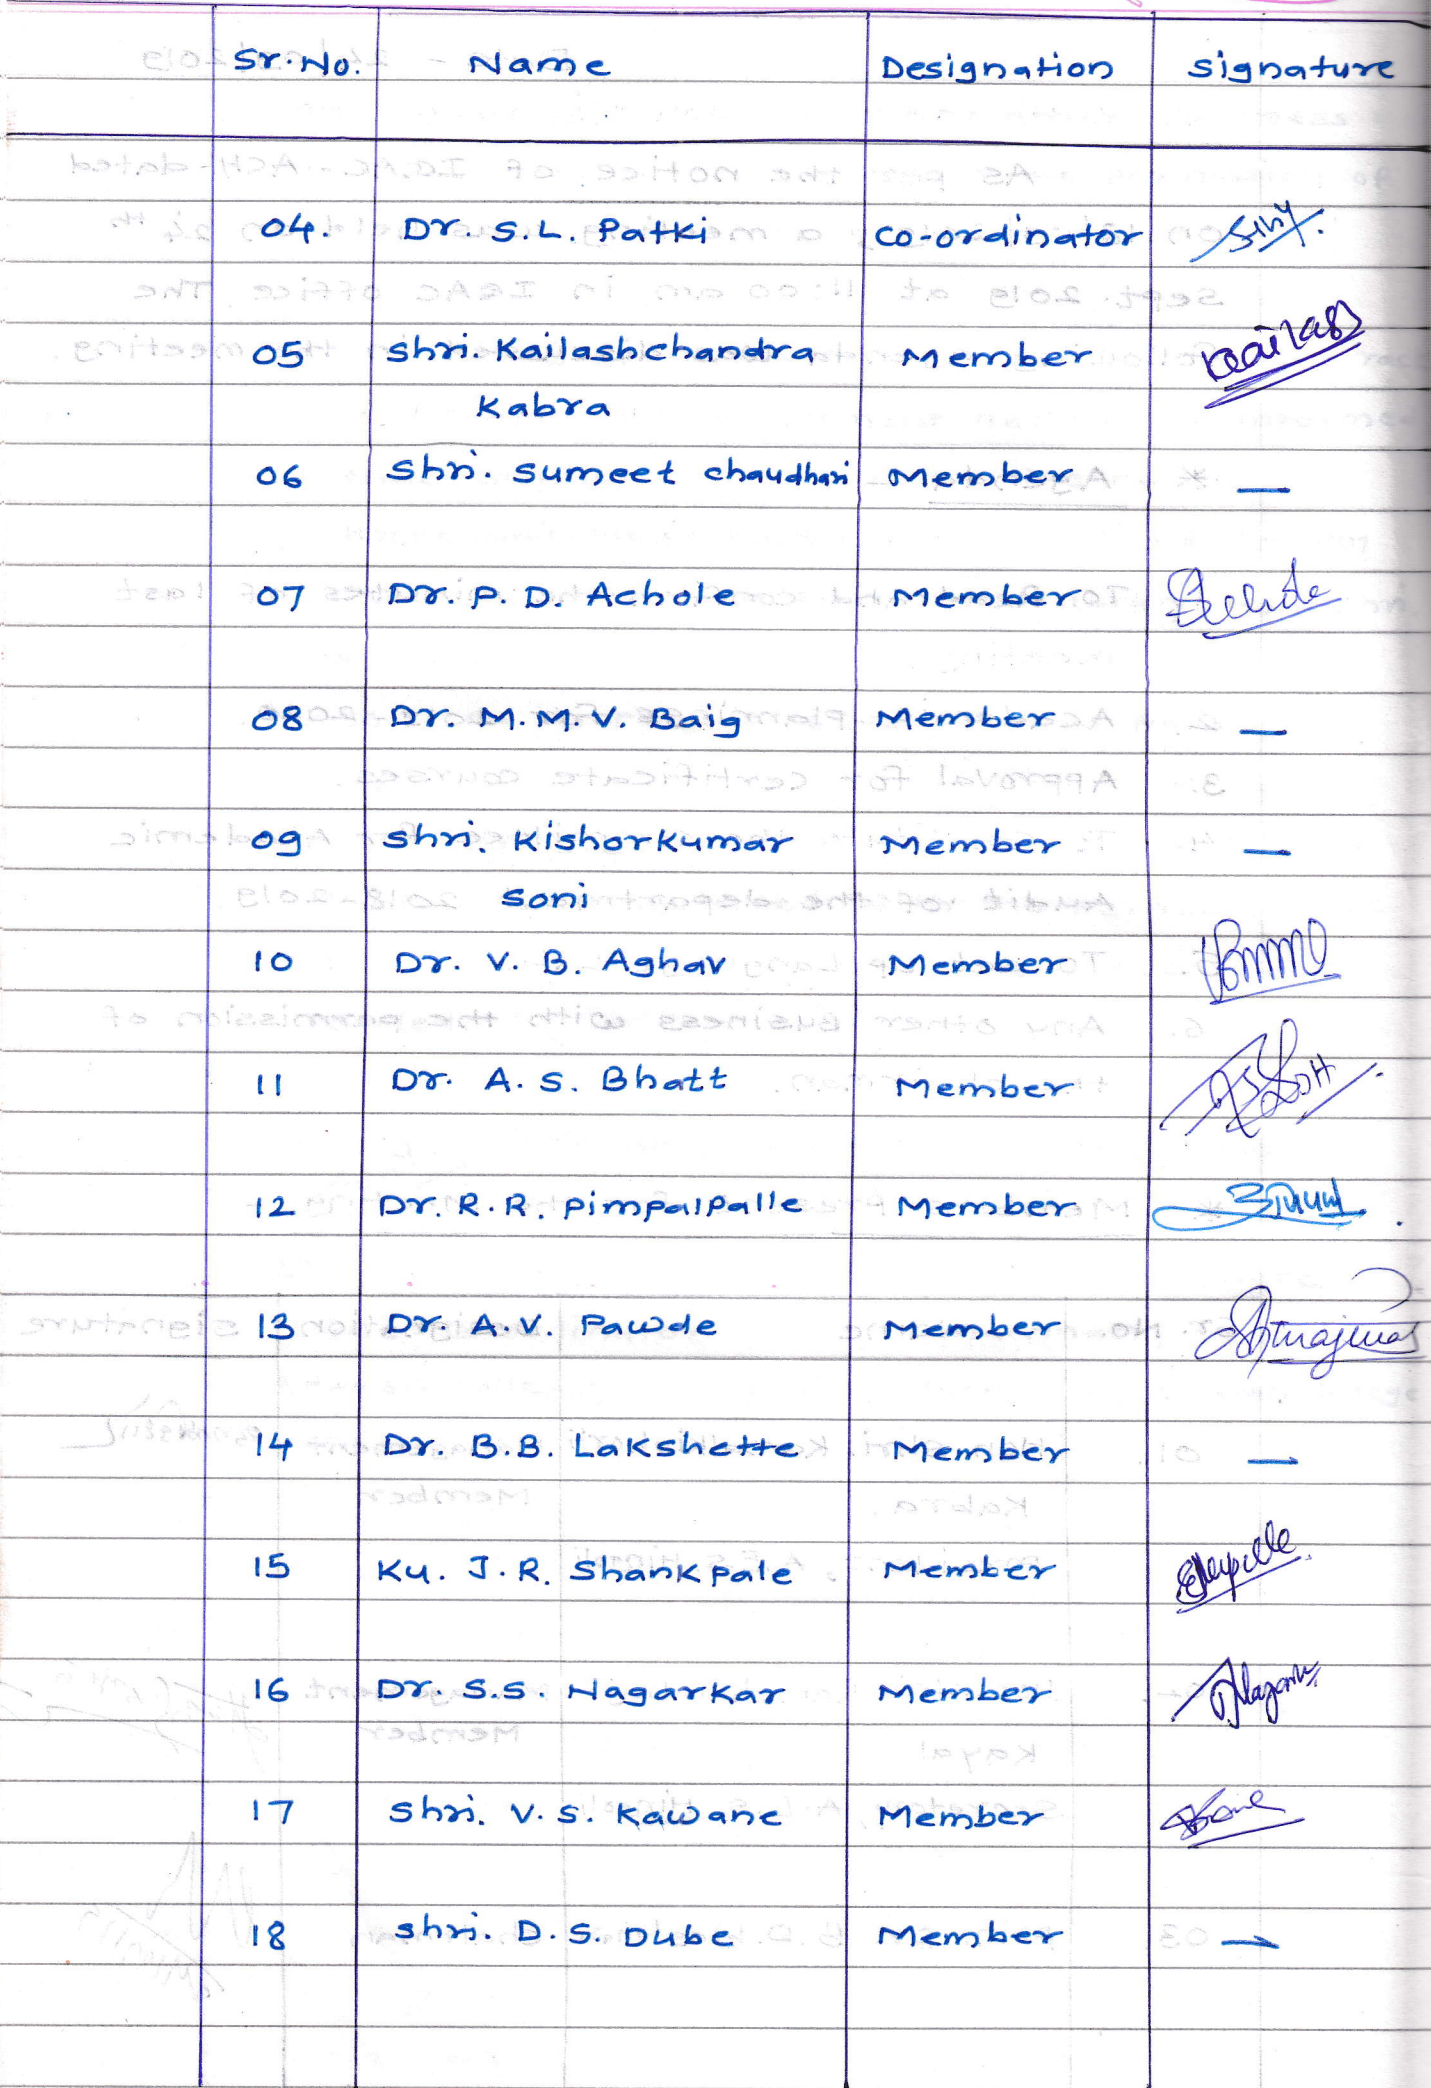 Sr. No. Name Designation signature
04. Dr. S.L. Patki co-ordinator
05 shri. Kailashchandra Member
Kabra
06 Shri. Sumeet chaudhari Member —
07 Dr. P. D. Achole Member
08 Dr. M.M.V. Baig Member —
09 shri. Kishorkumar Member —
soni
10 Dr. V. B. Aghav Member
11 Dr. A. S. Bhatt Member
12 Dr. R. R. Pimpalpalle Member
13 Dr. A.V. Pawde Member
14 Dr. B.B. Lakshette Member —
15 Ku. J.R. Shankpale Member
16 Dr. S.S. Nagarkar Member
17 shri. V. S. Kawane Member
18 shri. D. S. Dube Member —